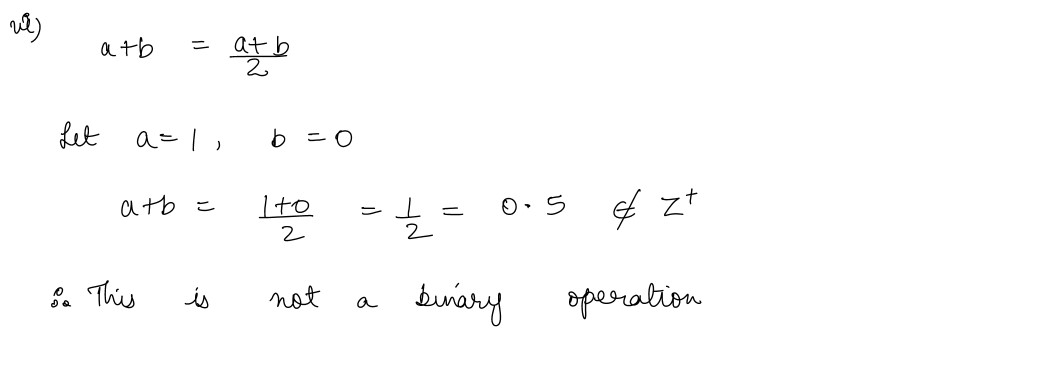 vii)
a+b = a+b/2
Let a=1, b=0
a+b = 1+0/2 = 1/2 = 0.5 ∉ Z⁺
∴ This is not a binary operation